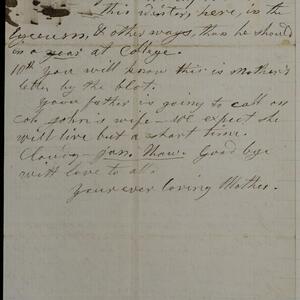 this winter, here, in the
Lyceum, & other ways, than he should
in a year at College.
10th You will know this is Mother's
letter by the blot.
Your father is going to call on
Col. John's wife - We expect she
will live but a short time.
Cloudy - Jan. Thaw. Good bye
with love to all.
Your ever loving Mother.